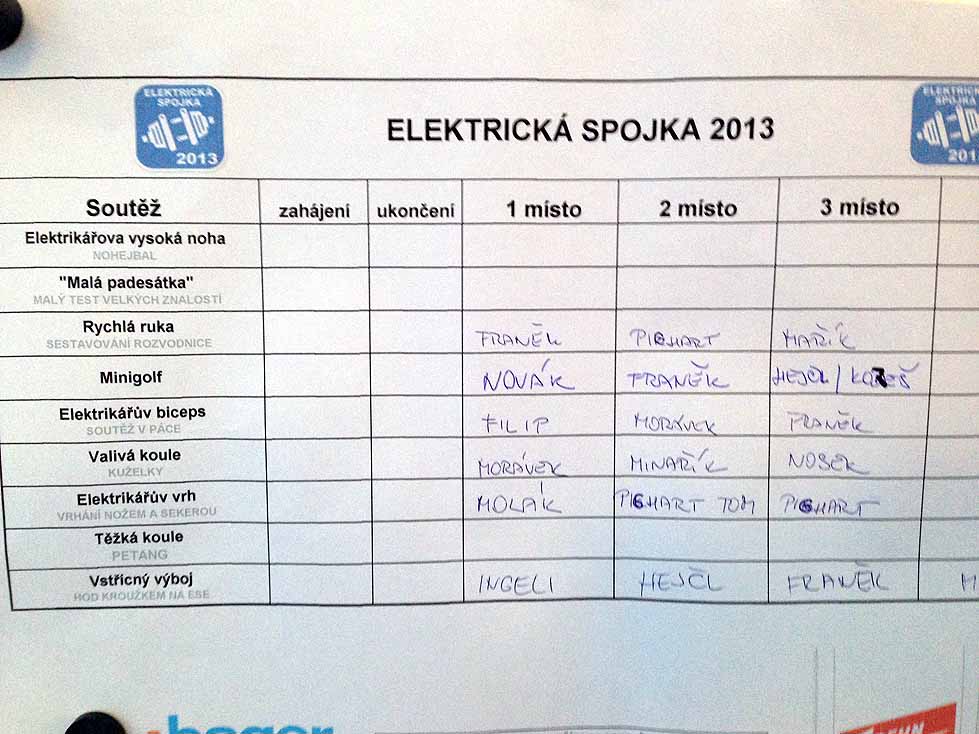 ELEKTRICKÁ
SPOJKA
2013
ELEKTRICKÁ SPOJKA 2013
ELEKTRICK
SPOJKA
201
Soutěž zahájení ukončení 1 místo 2 místo 3 místo
Elektrikářova vysoká noha
NOHEJBAL
"Malá padesátka"
MALÝ TEST VELKÝCH ZNALOSTÍ
Rychlá ruka
SESTAVOVÁNÍ ROZVODNICE
FRANĚK PIGHART MAŘÍK
Minigolf NOVÁK FRANĚK HEJČL /
Elektrikářův biceps
SOUTĚŽ V PÁCE
FILIP MORÁVEK FRANĚK
Valivá koule
KUŽELKY
MORÁVEK MINAŘÍK NOSEK
Elektrikářův vrh
VRHÁNÍ NOŽEM A SEKEROU
MOLÁK PIGHART TOM PIGHART
Těžká koule
PETANG
Vstřícný výboj
HOD KROUŽKEM NA ESE
INGELI HEJČL FRANĚK
hager